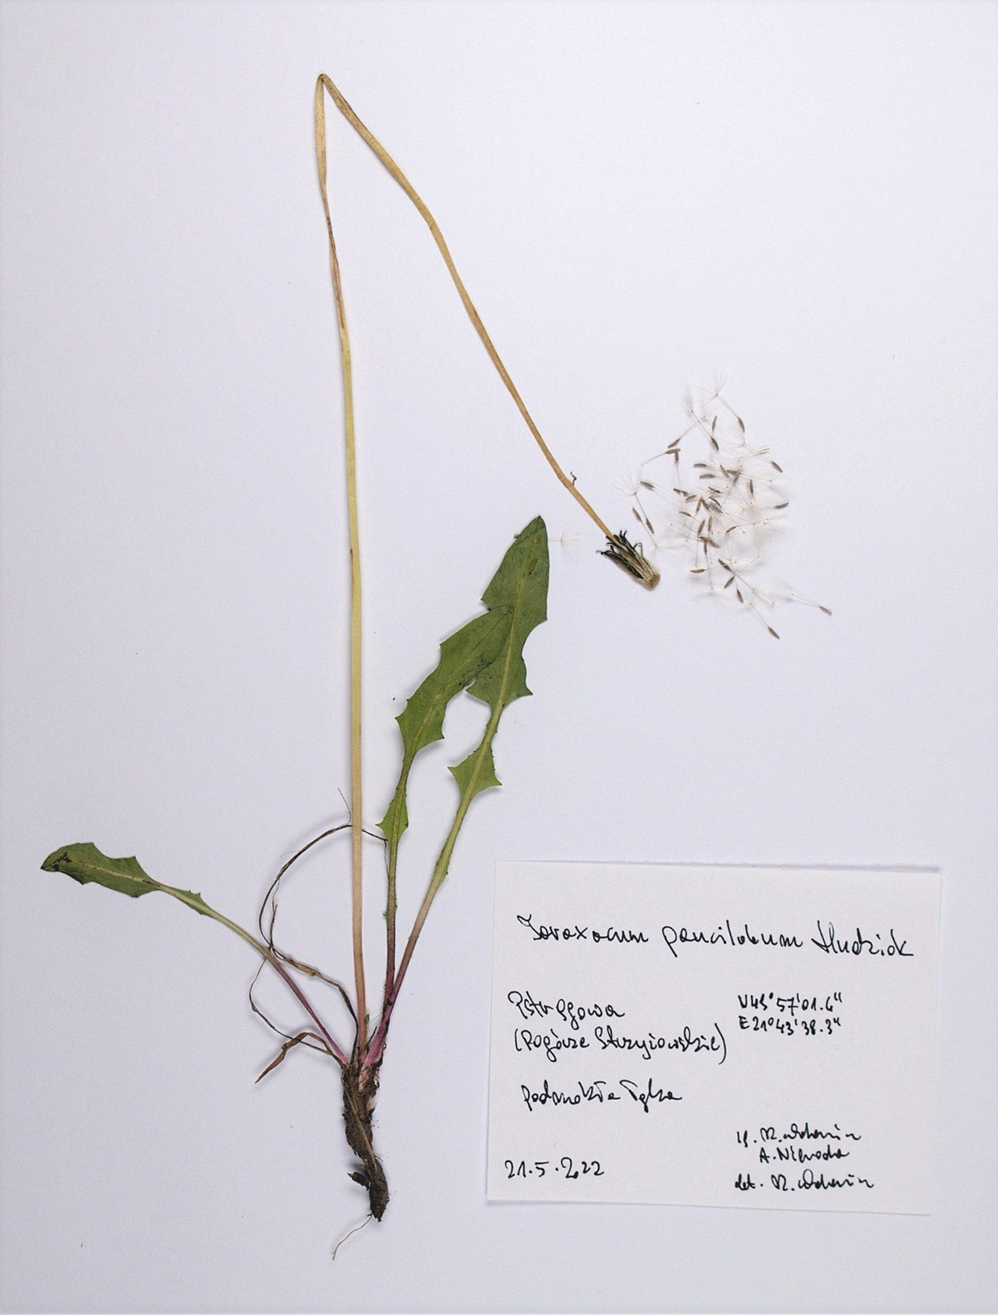 Taraxacum paucilobum Hudziok
Pstrągowa
(Pogórze Strzyżowskie)
N49°57'01.6"
E21°43'38.3"
podmokła łąka
21.5.2022
lg. M. Wolanin
A. Niewoda
det. M. Wolanin